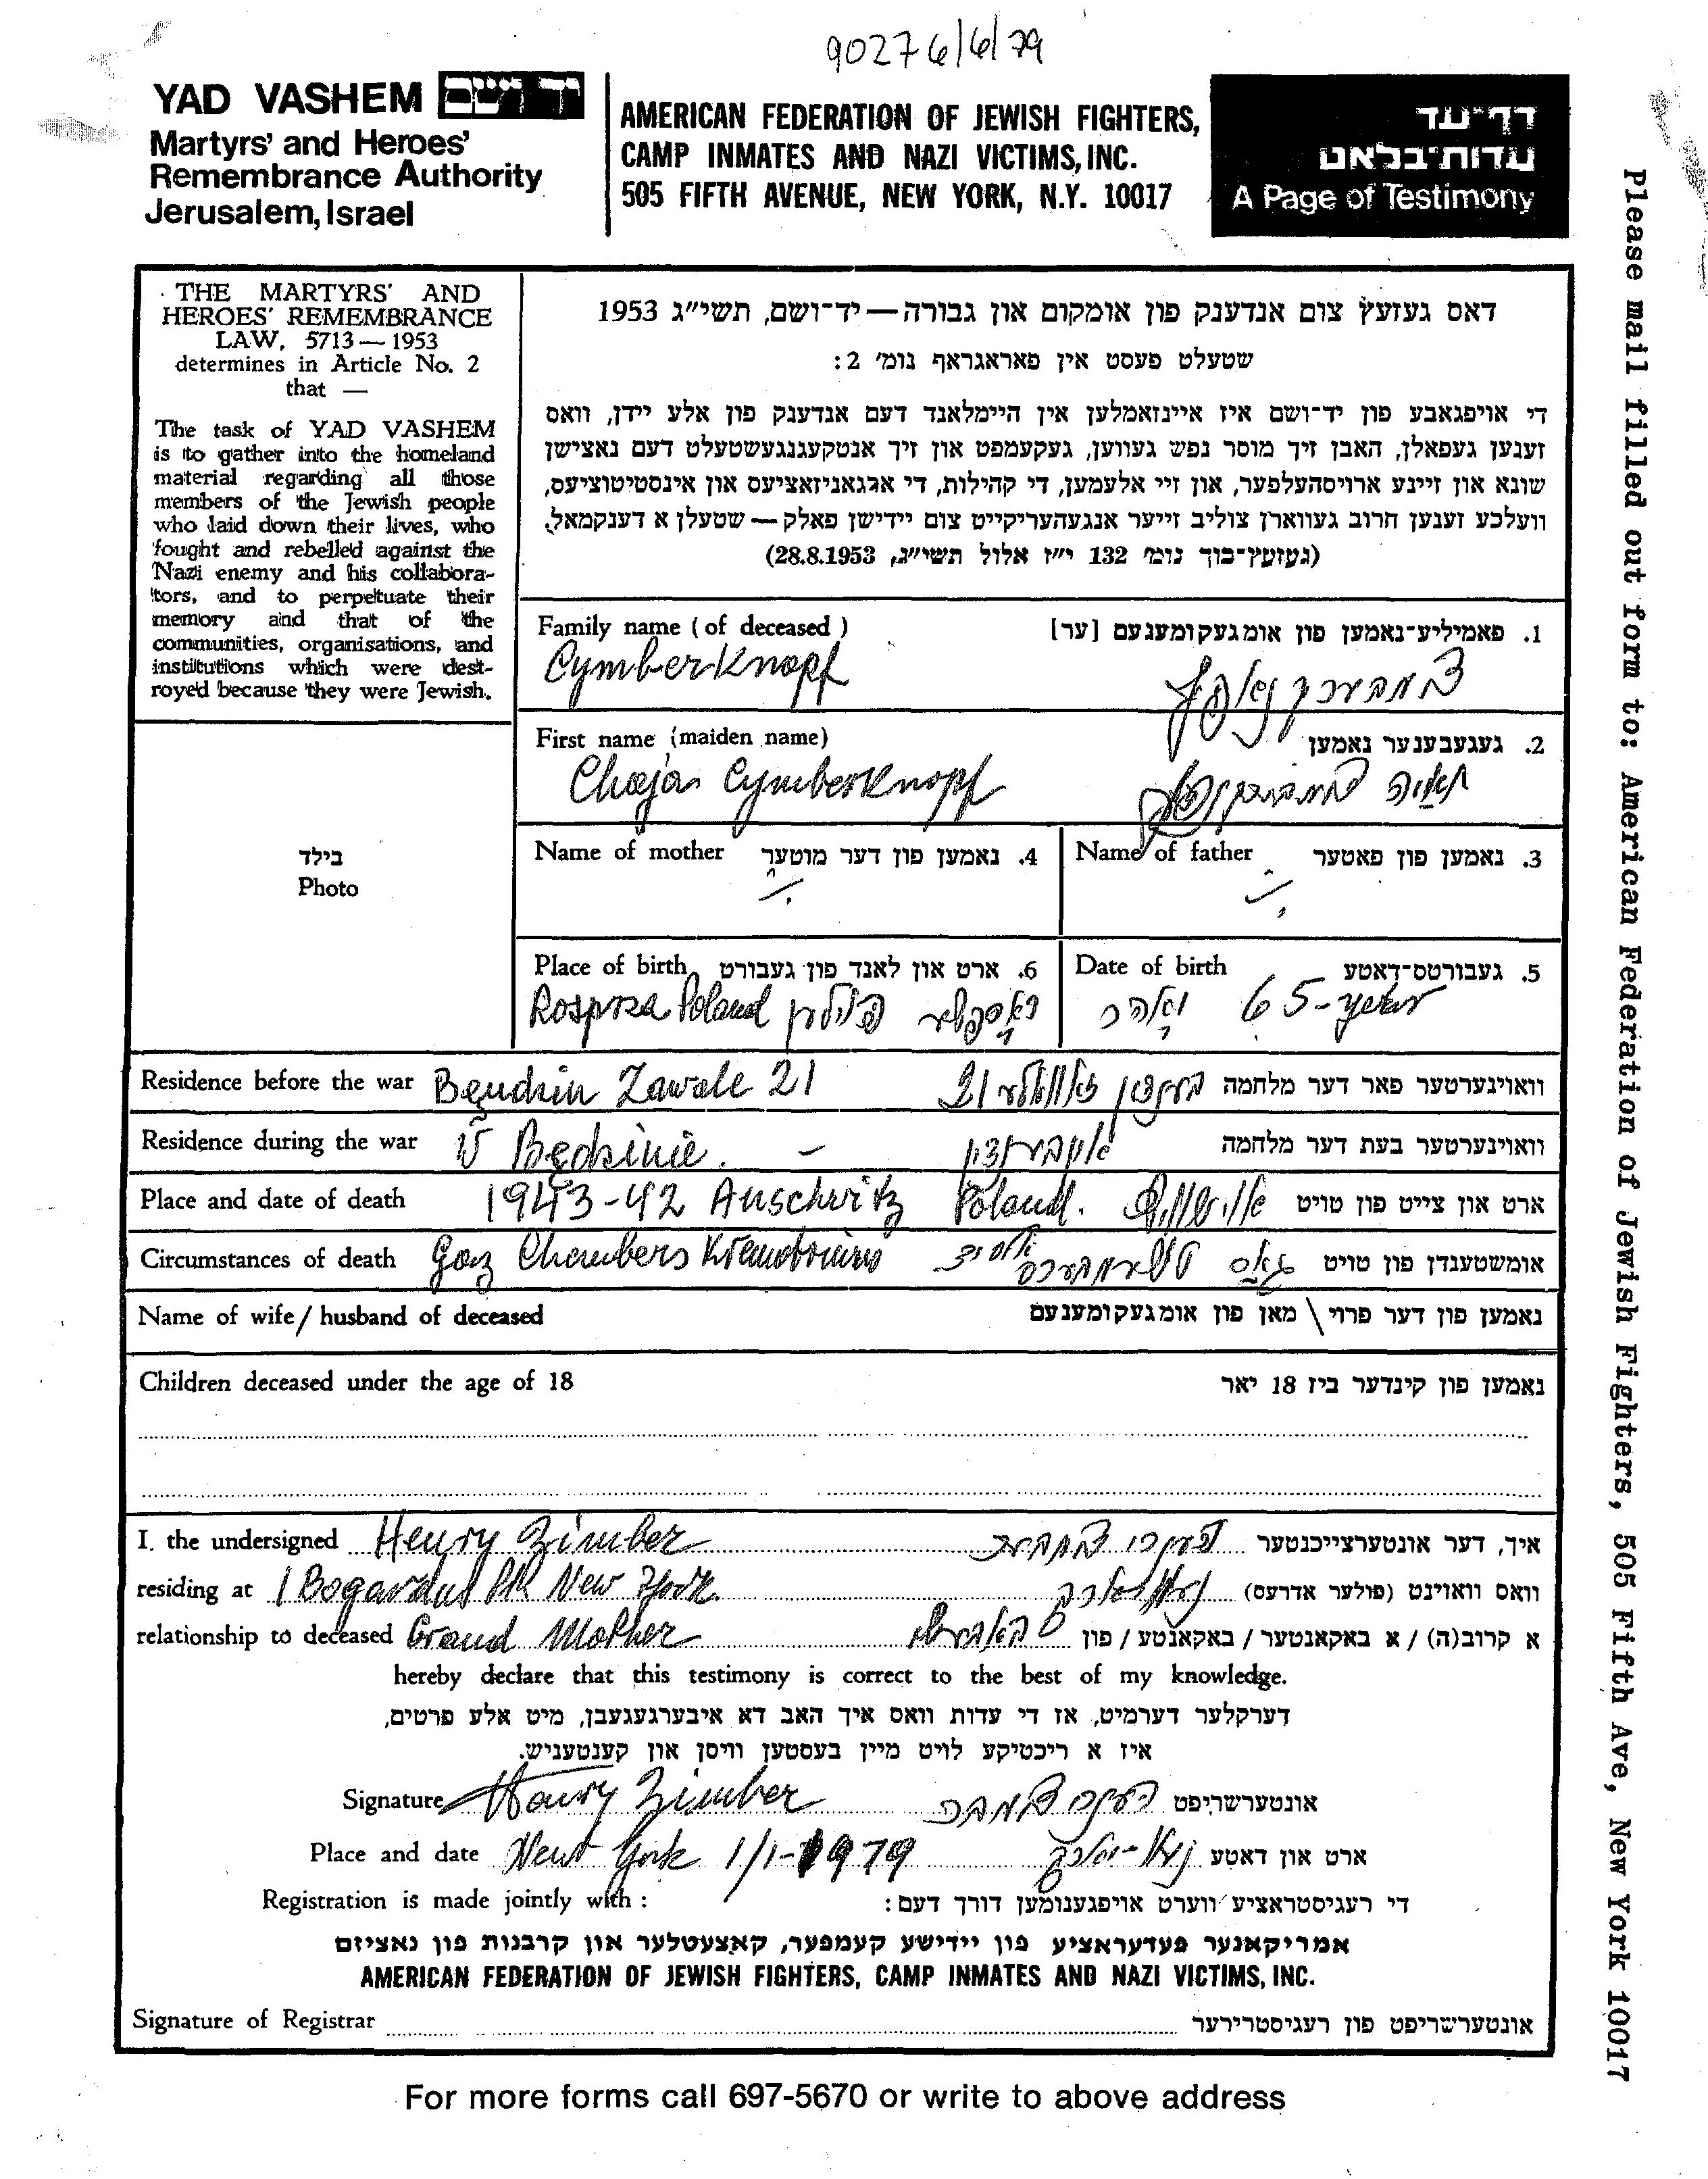 90276/6/79
YAD VASHEM יד ושם
Martyrs' and Heroes'
Remembrance Authority
Jerusalem, Israel
AMERICAN FEDERATION OF JEWISH FIGHTERS,
CAMP INMATES AND NAZI VICTIMS, INC.
505 FIFTH AVENUE, NEW YORK, N.Y. 10017
דף־עד
עדות־בלאט
A Page of Testimony
THE MARTYRS' AND
HEROES' REMEMBRANCE
LAW, 5713 — 1953
determines in Article No. 2
that —
The task of YAD VASHEM
is to gather into the homeland
material regarding all those
members of the Jewish people
who laid down their lives, who
fought and rebelled against the
Nazi enemy and his collabora-
tors, and to perpetuate their
memory and that of the
communities, organisations, and
institutions which were dest-
royed because they were Jewish.
דאס געזעץ צום אנדענק פון אומקום און גבורה — יד־ושם, תשי"ג 1953
שטעלט פעסט אין פאראגראף נומ' 2:
די אויפגאבע פון יד־ושם איז איינזאמלען אין היימלאנד דעם אנדענק פון אלע יידן, וואס
זענען געפאלן, האבן זיך מוסר נפש געווען, געקעמפט און זיך אנטקעגנגעשטעלט דעם נאצישן
שונא און זיינע ארויסהעלפער, און זיי אלעמען, די קהילות, די ארגאניזאציעס און אינסטיטוציעס,
וועלכע זענען חרוב געווארן צוליב זייער אנגעהעריקייט צום יידישן פאלק — שטעלן א דענקמאל.
(געזעץ־בוך נומ' 132 י"ז אלול תשי"ג, 28.8.1953)
Family name (of deceased) 1. פאמיליע־נאמען פון אומגעקומענעם [ער]
Cymberknopf צימבערקנאפף
First name (maiden name) 2. געגעבענער נאמען
Chaja Cymberknopf חאיה
בילד
Photo
Name of mother 4. נאמען פון דער מוטער
Name of father 3. נאמען פון פאטער
Place of birth 6. ארט און לאנד פון געבורט
Rosprza Poland פוילען
Date of birth 5. געבורטס־דאטע
65-year
Residence before the war Bendzin Zawale 21 21 וואוינערטער פאר דער מלחמה
Residence during the war W Będzinie. – וואוינערטער בעת דער מלחמה
Place and date of death 1943-42 Auschwitz Poland. ארט און צייט פון טויט
Circumstances of death Gaz Chambers גאס אומשטענדן פון טויט
Name of wife / husband of deceased נאמען פון דער פרוי \ מאן פון אומגעקומענעם
Children deceased under the age of 18 נאמען פון קינדער ביז 18 יאר
I, the undersigned Henry Zimber הענרי צימבער איך, דער אונטערצייכנטער
residing at 1 Bogardus Pl. New York. וואס וואוינט (פולער אדרעס)
relationship to deceased Grand Mother א קרוב(ה) / א באקאנטער / באקאנטע / פון
hereby declare that this testimony is correct to the best of my knowledge.
דערקלער דערמיט, אז די עדות וואס איך האב דא איבערגעגעבן, מיט אלע פרטים,
איז א ריכטיקע לויט מיין בעסטען וויסן און קענטעניש.
Signature Henry Zimber הענרי צימבער אונטערשריפט
Place and date New York 1/1-1979 ארט און דאטע
Registration is made jointly with: די רעגיסטראציע ווערט אויפגענומען דורך דעם:
אמריקאנער פעדעראציע פון יידישע קעמפער, קאצעטלער און קרבנות פון נאציזם
AMERICAN FEDERATION OF JEWISH FIGHTERS, CAMP INMATES AND NAZI VICTIMS, INC.
Signature of Registrar אונטערשריפט פון רעגיסטרירער
For more forms call 697-5670 or write to above address
Please mail filled out form to: American Federation of Jewish Fighters, 505 Fifth Ave, New York 10017